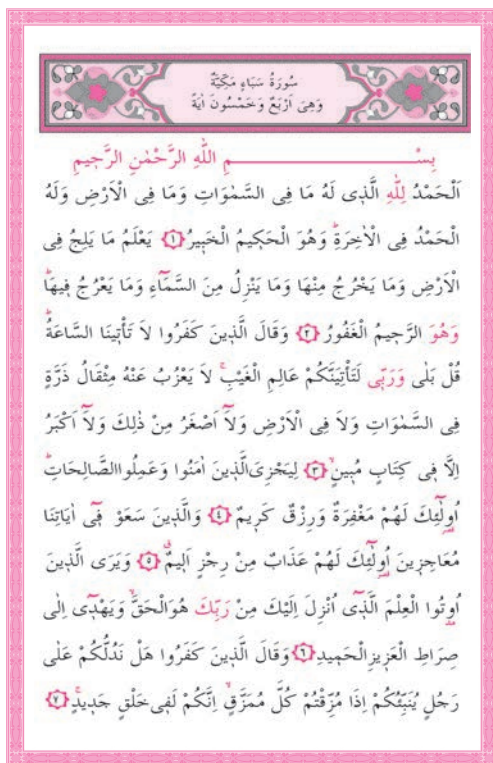 سُورَةُ سَبَاءٍ مَكِّيَّةٌ
وَهِىَ اَرْبَعٌ وَخَمْسُونَ اٰيَةً
بِسْمِ اللّٰهِ الرَّحْمٰنِ الرَّحِيمِ
اَلْحَمْدُ لِلّٰهِ الَّذ۪ى لَهُ مَا فِى السَّمٰوَاتِ وَمَا فِى الْاَرْضِ وَلَهُ
الْحَمْدُ فِى الْاٰخِرَةِۜ وَهُوَ الْحَك۪يمُ الْخَب۪يرُ ﴿١﴾ يَعْلَمُ مَا يَلِجُ فِى
الْاَرْضِ وَمَا يَخْرُجُ مِنْهَا وَمَا يَنْزِلُ مِنَ السَّمَٓاءِ وَمَا يَعْرُجُ ف۪يهَاۜ
وَهُوَ الرَّح۪يمُ الْغَفُورُ ﴿٢﴾ وَقَالَ الَّذ۪ينَ كَفَرُوا لَا تَأْت۪ينَا السَّاعَةُۜ
قُلْ بَلٰى وَرَبّ۪ى لَتَأْتِيَنَّكُمْ عَالِمِ الْغَيْبِۚ لَا يَعْزُبُ عَنْهُ مِثْقَالُ ذَرَّةٍ
فِى السَّمٰوَاتِ وَلَا فِى الْاَرْضِ وَلَٓا اَصْغَرُ مِنْ ذٰلِكَ وَلَٓا اَكْبَرُ
اِلَّا ف۪ى كِتَابٍ مُب۪ينٍۙ ﴿٣﴾ لِيَجْزِىَ الَّذ۪ينَ اٰمَنُوا وَعَمِلُوا الصَّالِحَاتِۜ
اُو۬لٰٓئِكَ لَهُمْ مَغْفِرَةٌ وَرِزْقٌ كَر۪يمٌ ﴿٤﴾ وَالَّذ۪ينَ سَعَوْ ف۪ٓى اٰيَاتِنَا
مُعَاجِز۪ينَ اُو۬لٰٓئِكَ لَهُمْ عَذَابٌ مِنْ رِجْزٍ اَل۪يمٌ ﴿٥﴾ وَيَرَى الَّذ۪ينَ
اُو۫تُوا الْعِلْمَ الَّذ۪ٓى اُنْزِلَ اِلَيْكَ مِنْ رَبِّكَ هُوَ الْحَقَّۙ وَيَهْد۪ٓى اِلٰى
صِرَاطِ الْعَز۪يزِ الْحَم۪يدِ ﴿٦﴾ وَقَالَ الَّذ۪ينَ كَفَرُوا هَلْ نَدُلُّكُمْ عَلٰى
رَجُلٍ يُنَبِّئُكُمْ اِذَا مُزِّقْتُمْ كُلَّ مُمَزَّقٍۙ اِنَّكُمْ لَف۪ى خَلْقٍ جَد۪يدٍۚ ﴿٧﴾